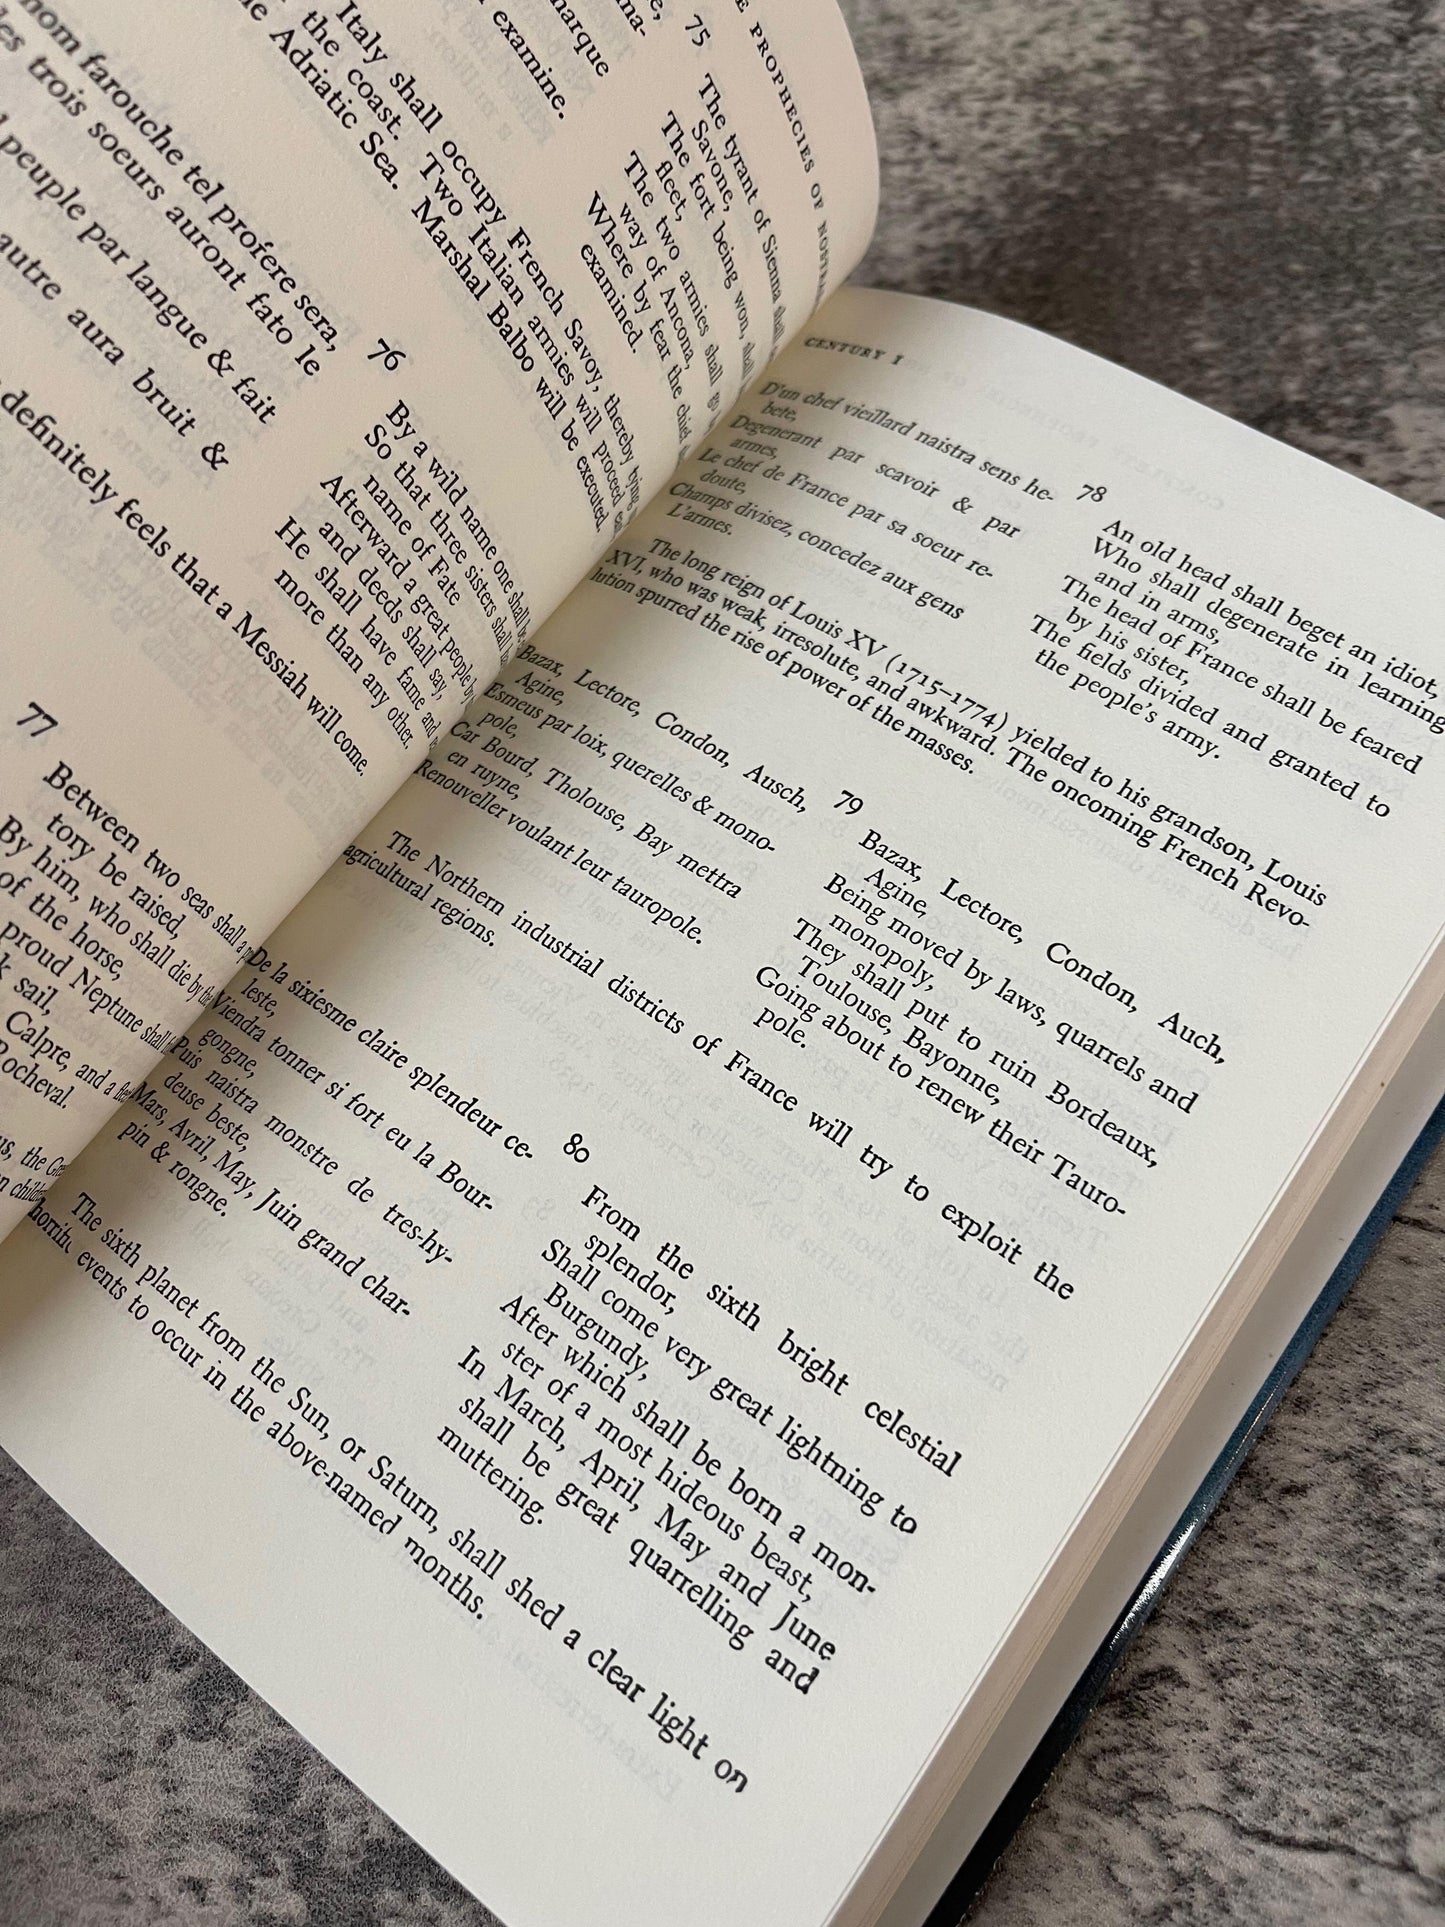 THE PROPHECIES OF NOSTRA
75
The tyrant of Sienna shall
Savone,
The fort being won, shall
fleet,
The two armies shall go
way of Ancona,
Where by fear the chief
examined.
marque
examine.
Italy shall occupy French Savoy, thereby tying
the coast. Two Italian armies will proceed
Adriatic Sea. Marshal Balbo will be executed.
76
nom farouche tel profére sera,
les trois soeurs auront fato le
peuple par langue & fait
autre aura bruit &
By a wild name one shall be
So that three sisters shall
name of Fate
Afterward a great people by
and deeds shall say,
He shall have fame and
more than any other.
definitely feels that a Messiah will come.
77
Between two seas shall a
tory be raised,
By him, who shall die by the
of the horse,
proud Neptune shall
sail,
Calpre, and a
Rocheval.
the
CENTURY I
78
D'un chef vieillard naistra sens he-
bete,
Degenerant par scavoir & par
armes,
Le chef de France par sa soeur re-
doute,
Champs divisez, concedez aux gens
L'armes.
An old head shall beget an idiot,
Who shall degenerate in learning
and in arms,
The head of France shall be feared
by his sister,
The fields divided and granted to
the people's army.
The long reign of Louis XV (1715–1774) yielded to his grandson, Louis
XVI, who was weak, irresolute, and awkward. The oncoming French Revo-
lution spurred the rise of power of the masses.
79
Bazax, Lectore, Condon, Ausch,
Agine,
Esmeus par loix, querelles & mono-
pole,
Car Bourd, Tholouse, Bay mettra
en ruyne,
Renouveller voulant leur tauropole.
Bazax, Lectore, Condon, Auch,
Agine,
Being moved by laws, quarrels and
monopoly,
They shall put to ruin Bordeaux,
Toulouse, Bayonne,
Going about to renew their Tauro-
pole.
The Northern industrial districts of France will try to exploit the
agricultural regions.
80
De la sixiesme claire splendeur ce-
leste,
Viendra tonner si fort eu la Bour-
gongne,
Puis naistra monstre de tres-hy-
deuse beste,
Mars, Avril, May, Juin grand char-
pin & rongne.
From the sixth bright celestial
splendor,
Shall come very great lightning to
Burgundy,
After which shall be born a mon-
ster of a most hideous beast,
In March, April, May and June
shall be great quarrelling and
muttering.
The sixth planet from the Sun, or Saturn, shall shed a clear light on
events to occur in the above-named months.